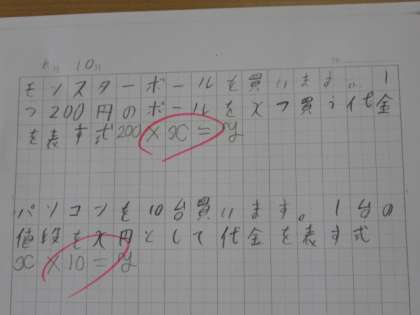 モンスターボールを買います。1
つ200円のボールをxつ買う代金
を表す式200×x=y
パソコンを10台買います。1台の
値段をx円として代金を表す式
x×10=y